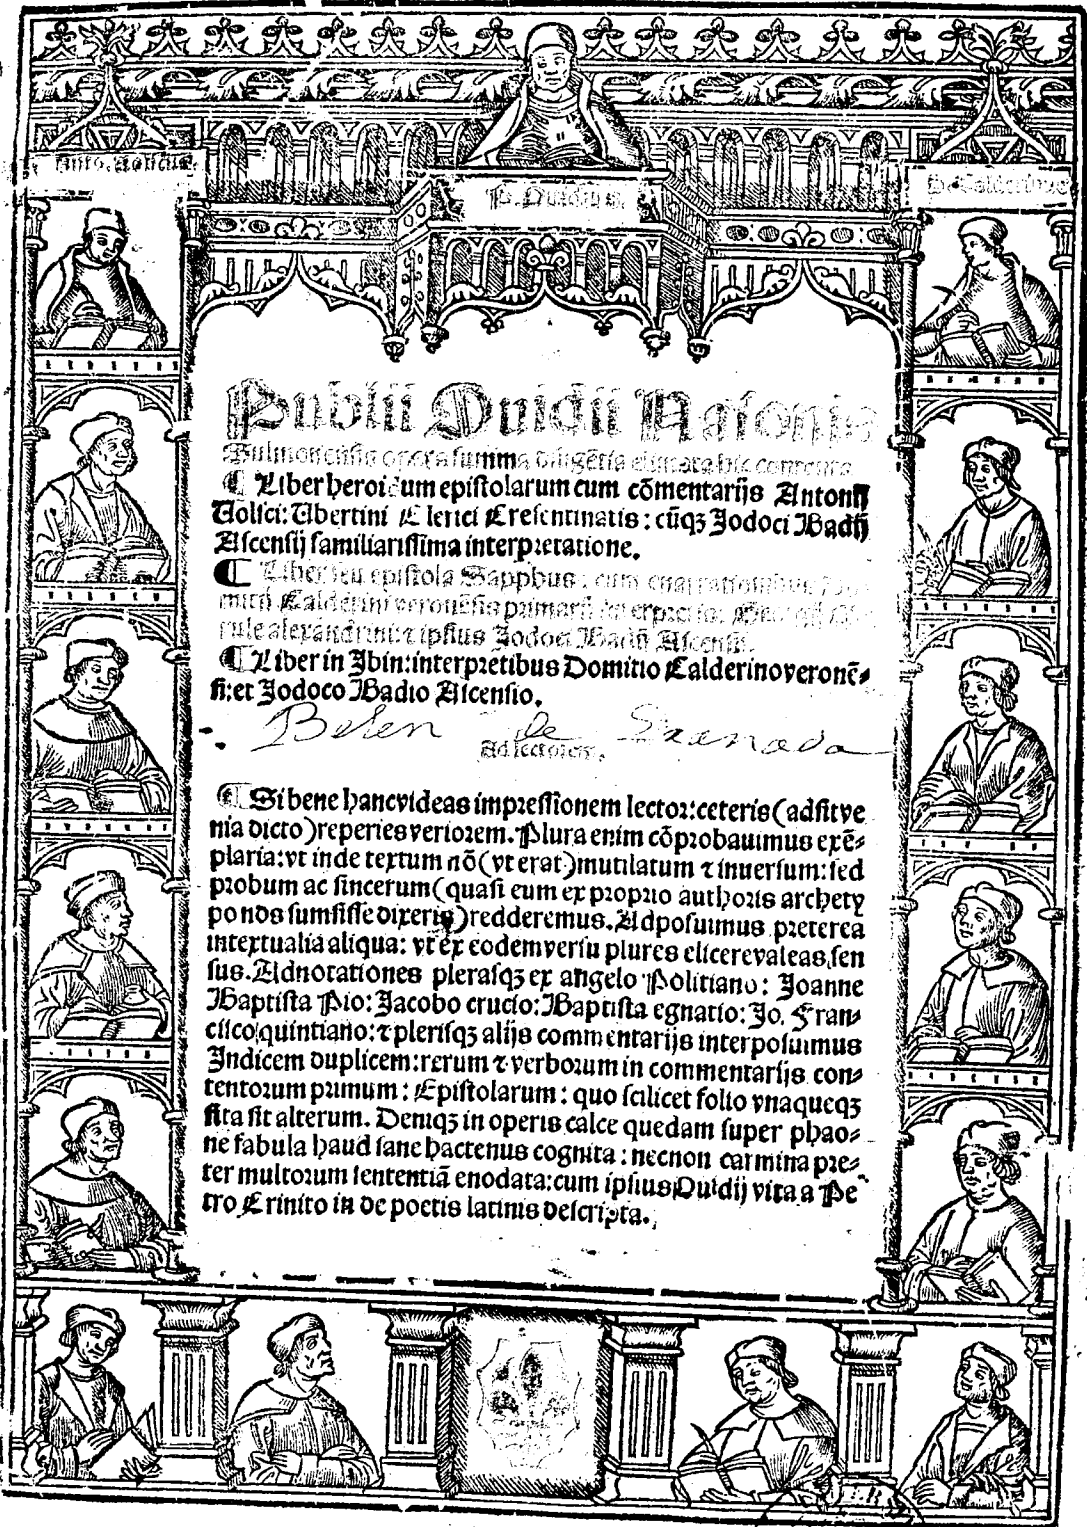 P. Ouidius.
Publii Ouidii Nasonis
Sulmonensis opera summa diligētia elimata hic contenta
¶ Liber heroidum epistolarum cum cōmentarijs Antonij
Volsci: Ubertini Clerici Cresentinatis: cūqꝫ Jodoci Badij
Ascensij familiarissima interpretatione.
¶ Liber seu epistola Sapphus: cum enarrationibus
mitij Calderini veronēsis primarij interpretis:
rule alexandrini: ⁊ ipsius Jodoci Badij Ascensij.
¶ Liber in Ibin: interpretibus Domitio Calderino veronē-
si: et Jodoco Badio Ascensio.
Belen de Granada
Ad lectorem.
¶ Si bene hanc videas impressionem lector: ceteris (adsit ve
nia dicto) reperies veriorem. Plura enim cōprobauimus exē-
plaria: vt inde textum nō (vt erat) mutilatum ⁊ inuersum: sed
probum ac sincerum (quasi eum ex proprio authoris archety
po nos sumsisse dixeris) redderemus. Adposuimus preterea
intextualia aliqua: vt ex eodem versu plures elicere valeas sen
sus. Adnotationes plerasqꝫ ex angelo Politiano: Joanne
Baptista Pio: Jacobo crucio: Baptista egnatio: Jo. Fran-
cisco quintiano: ⁊ plerisqꝫ alijs commentarijs interposuimus
Indicem duplicem: rerum ⁊ verborum in commentarijs con-
tentorum primum: Epistolarum: quo scilicet folio vnaqueqꝫ
sita sit alterum. Deniqꝫ in operis calce quedam super phao-
ne fabula haud sane hactenus cognita: necnon carmina pre-
ter multorum sententiā enodata: cum ipsius Ouidij vita a Pe
tro Crinito in de poetis latinis descripta.